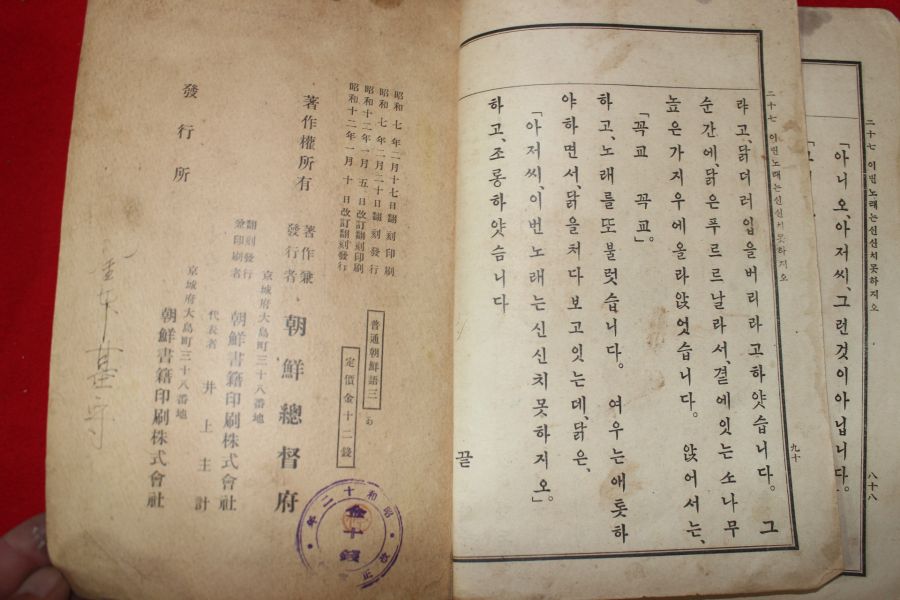 二十七 이번노래는신신치못하지오 八十八
「아니오,아저씨,그런것이아닙니다。
二十七 이번노래는신신치못하지오 九十
랴고,닭더러입을버리라고하얏습니다。 그
순간에,닭은푸르르날라서,겯에잇는소나무
높은가지우에올라앉엇습니다。 앉어서는,
「꼭교 꼭교」。
하고,노래를또불럿습니다。 여우는애톳하
야하면서,닭을처다보고잇는데,닭은,
「아저씨,이번노래는신신치못하지오。」
하고,조롱하얏슴니다
끝
昭和七年二月十七日翻刻印刷
昭和七年二月二十日翻刻發行
昭和十二年一月五日改訂翻刻印刷
昭和十二年一月十日改訂翻刻發行
普通朝鮮語三
定價金十二錢
著作權所有
著作兼發行者 朝鮮總督府
京城府大島町三十八番地
翻刻發行兼印刷者 朝鮮書籍印刷株式會社
代表者 井上主計
京城府大島町三十八番地
發行所 朝鮮書籍印刷株式會社
昭和十二年
金十錢
改正